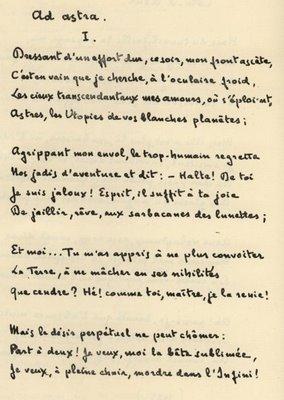 Ad astra.
I.
Dressant d'un effort dur, ce soir, mon front ascète,
C'est en vain que je cherche, à l'oculaire froid,
Les cieux transcendantaux mes amours, où s'éploi'nt,
Astres, les Utopies de vos blanches planètes ;
Agrippant mon envol, le trop-humain regretta
Nos jadis d'aventure et dit : - Halte ! De toi
Je suis jaloux ! Esprit, il suffit à ta joie
De jaillir, rêve, aux sarbacanes des lunettes ;
Et moi... Tu m'as appris à ne plus convoiter
La Terre, à ne mâcher en ses nihilités
que cendre ? Hé ! comme toi, maître, je la renie !
Mais le désir perpétuel ne peut chômer :
Part à deux ! Je veux, moi la bête sublimée,
Je veux, à pleine chair, mordre dans l'Infini !